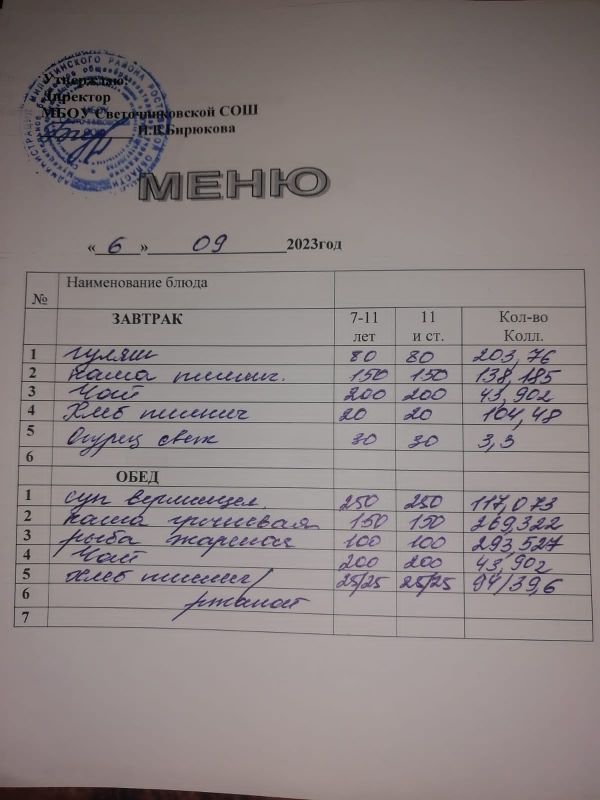 Утверждаю:
Директор
МБОУ Светочниковской СОШ
Бирюкова
МЕНЮ
« 6 » 09 2023год
№ Наименование блюда
ЗАВТРАК 7-11 лет 11 и ст. Кол-во Колл.
1 гуляш 80 80 203,76
2 каша пшенич. 150 150 138,185
3 Чай 200 200 43,902
4 Хлеб пшенич 20 20 104,48
5 Огурец свеж 30 30 3,3
6
ОБЕД
1 суп вермишел. 250 250 117,073
2 каша гречневая 150 150 269,322
3 рыба жареная 100 100 293,527
4 Чай 200 200 43,902
5 хлеб пшенич/ 25/25 25/25 94/39,6
6 ржаной
7